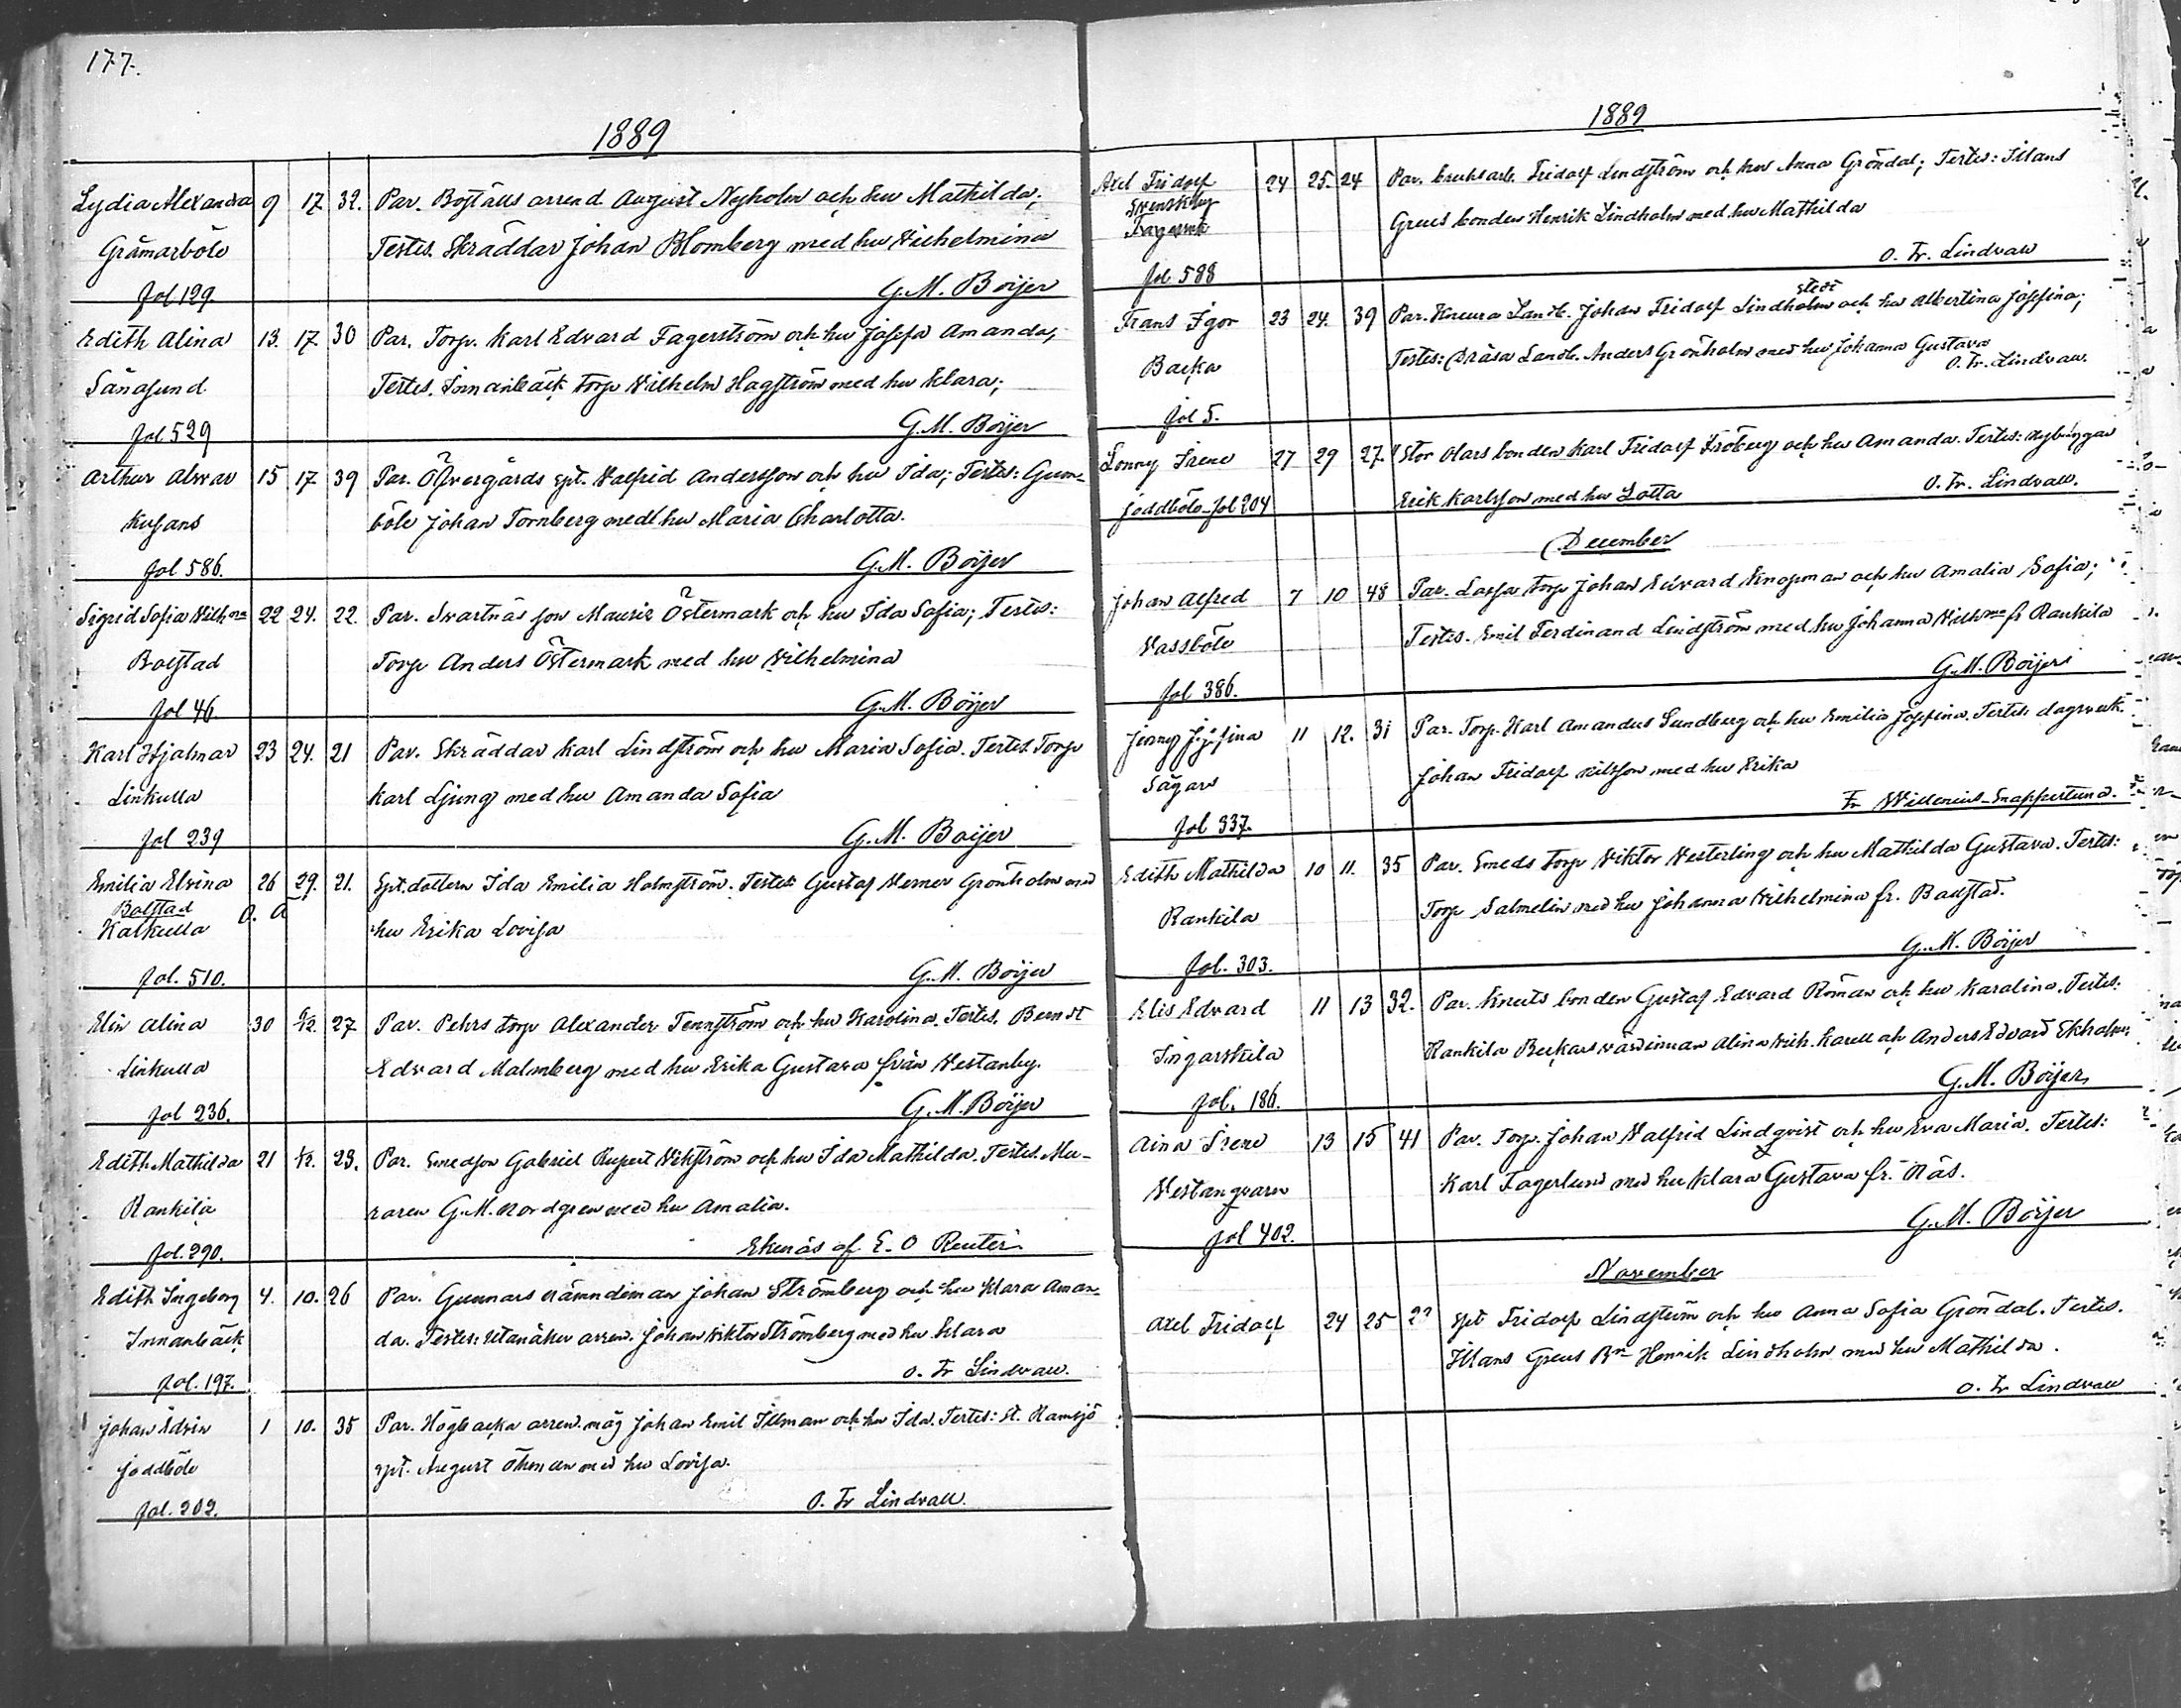 177.
1889
Lydia Alexandra 9 17. 32. Par. Boställs arrend August Nyholm och hu Mathilda;
Gråmarböle Testes. Skräddar Johan Blomberg med hu Vilhelmina
fol 129. G. M. Boijer
Edith Alina 13. 17. 30 Par. Torp. Karl Edvard Fagerström och hu Josefa Amanda,
Sånasund Testes. Innanbäck torp Vilhelm Hagström med hu Klara;
fol 529 G. M. Boijer
Arthur Alvar 15 17. 39 Par. Öfvergårds spt. Valfrid Andersson och hu Ida; Testes: Gum-
Kusans böle Johan Tornberg med hu Maria Charlotta.
fol 586. G. M. Boijer
Sigrid Sofia Vilhma 22 24. 22. Par. Svartnäs son Mauriz Östermark och hu Ida Sofia; Testes:
Bolstad Torp Anders Östermark med hu Vilhelmina
fol 46. G. M. Boijer
Karl Hjalmar 23 24. 21 Par. Skräddar Karl Lindström och hu Maria Sofia. Testes. Torp
Linkulla Karl Ljung med hu Amanda Sofia
fol 239 G. M. Boijer
Emilia Elvina 26 29. 21. Spt. dottern Ida Emilia Holmström. Testes: Gustaf Verner Grönholm med
Bolstad o. ä
Kalkulla hu Erika Lovisa
fol. 510. G. M. Boijer
Elin Alina 30 1/12. 27 Par. Pehrs torp Alexander Tennström och hu Karolina. Testes. Berndt
Linkulla Edvard Malmberg med hu Erika Gustava från Vestanby.
fol 236. G. M. Boijer
Edith Mathilda 21 1/12. 23. Par. Smedson Gabriel Rupert Vikström och hu Ida Mathilda. Testes. Mu-
Rankila raren G. M. Nordgren med hu Amalia.
fol. 290. Ekenäs af E. O Reuter
Edith Ingeborg 4. 10. 26 Par. Gunnars nämndeman Johan Strömberg och hu Klara Aman-
Innanbäck da. Testes: Utanåker arren. Johan Viktor Strömberg med hu Klara
fol. 197. O. Fr Lindvall.
Johan Edvin 1 10. 35 Par. Högbacka arren. måg Johan Emil Illman och hu Ida. Testes: St. Ramsjö
Joddböle spt. August Öhman med hu Lovisa.
fol. 202. O. Fr Lindvall.
1889
Axel Fridolf 24 25. 24 Par. bruksarb. Fridolf Lindström och hu Anna Gröndal; Testes: Illans
Svenskby
Fagervik Greus bonden Henrik Lindholm med hu Mathilda
fol 588 O. Fr. Lindvall
stedt
Frans Igor 23 24. 39 Par. Landb. Johan Fridolf Lindholm och hu Albertina Josefina;
Backa Testes: Landb. Anders Grönholm med hu Johanna Gustava
fol 5. O. Fr. Lindvall.
Lonny Irene 27 29 27. Stor Olars bonden Karl Fridolf Fröberg och hu Amanda. Testes: Nybyggar
Joddböle fol 204 Erik Karlsson med hu Lotta O. Fr. Lindvall.
December
Johan Alfred 7 10 48 Par. Lassa torp Johan Edvard Knopman och hu Amalia Sofia;
Vassböle Testes. Emil Ferdinand Lindström med hu Johanna Vilhma fr Rankila
fol 386. G. M. Boijer
Jenny Josefina 11 12. 31 Par. Torp. Karl Amandus Sundberg och hu Emilia Josefina. Testes: dagsverk.
Sågars Johan Fridolf Nilsson med hu Erika
fol 337. Fr Willenius-Snappertuna.
Edith Mathilda 10 11. 35 Par. Smeds torp Viktor Vesterling och hu Mathilda Gustava. Testes:
Rankila Torp Salmelin med hu Johanna Vilhelmina fr. Bollstad.
fol. 303. G. M. Boijer
Elis Edvard 11 13 32. Par. Knuts bonden Gustaf Edvard Roman och hu Karolina. Testes.
Ingarskila Rankila Beckars värdinnan Alina Vilh. Karell och Anders Edvard Ekholm
fol. 186. G. M. Boijer
Aina Irene 13 15 41 Par. Torp. Johan Valfrid Lindqvist och hu Eva Maria. Testes:
Vestanqvarn Karl Fagerlund med hu Klara Gustava fr. Näs.
fol 402. G. M. Boijer
November
Axel Fridolf 24 25 Spt Fridolf Lindström och hu Anna Sofia Gröndal. Testes.
Illans Greus Bn Henrik Lindholm med hu Mathilda.
O. Fr Lindvall